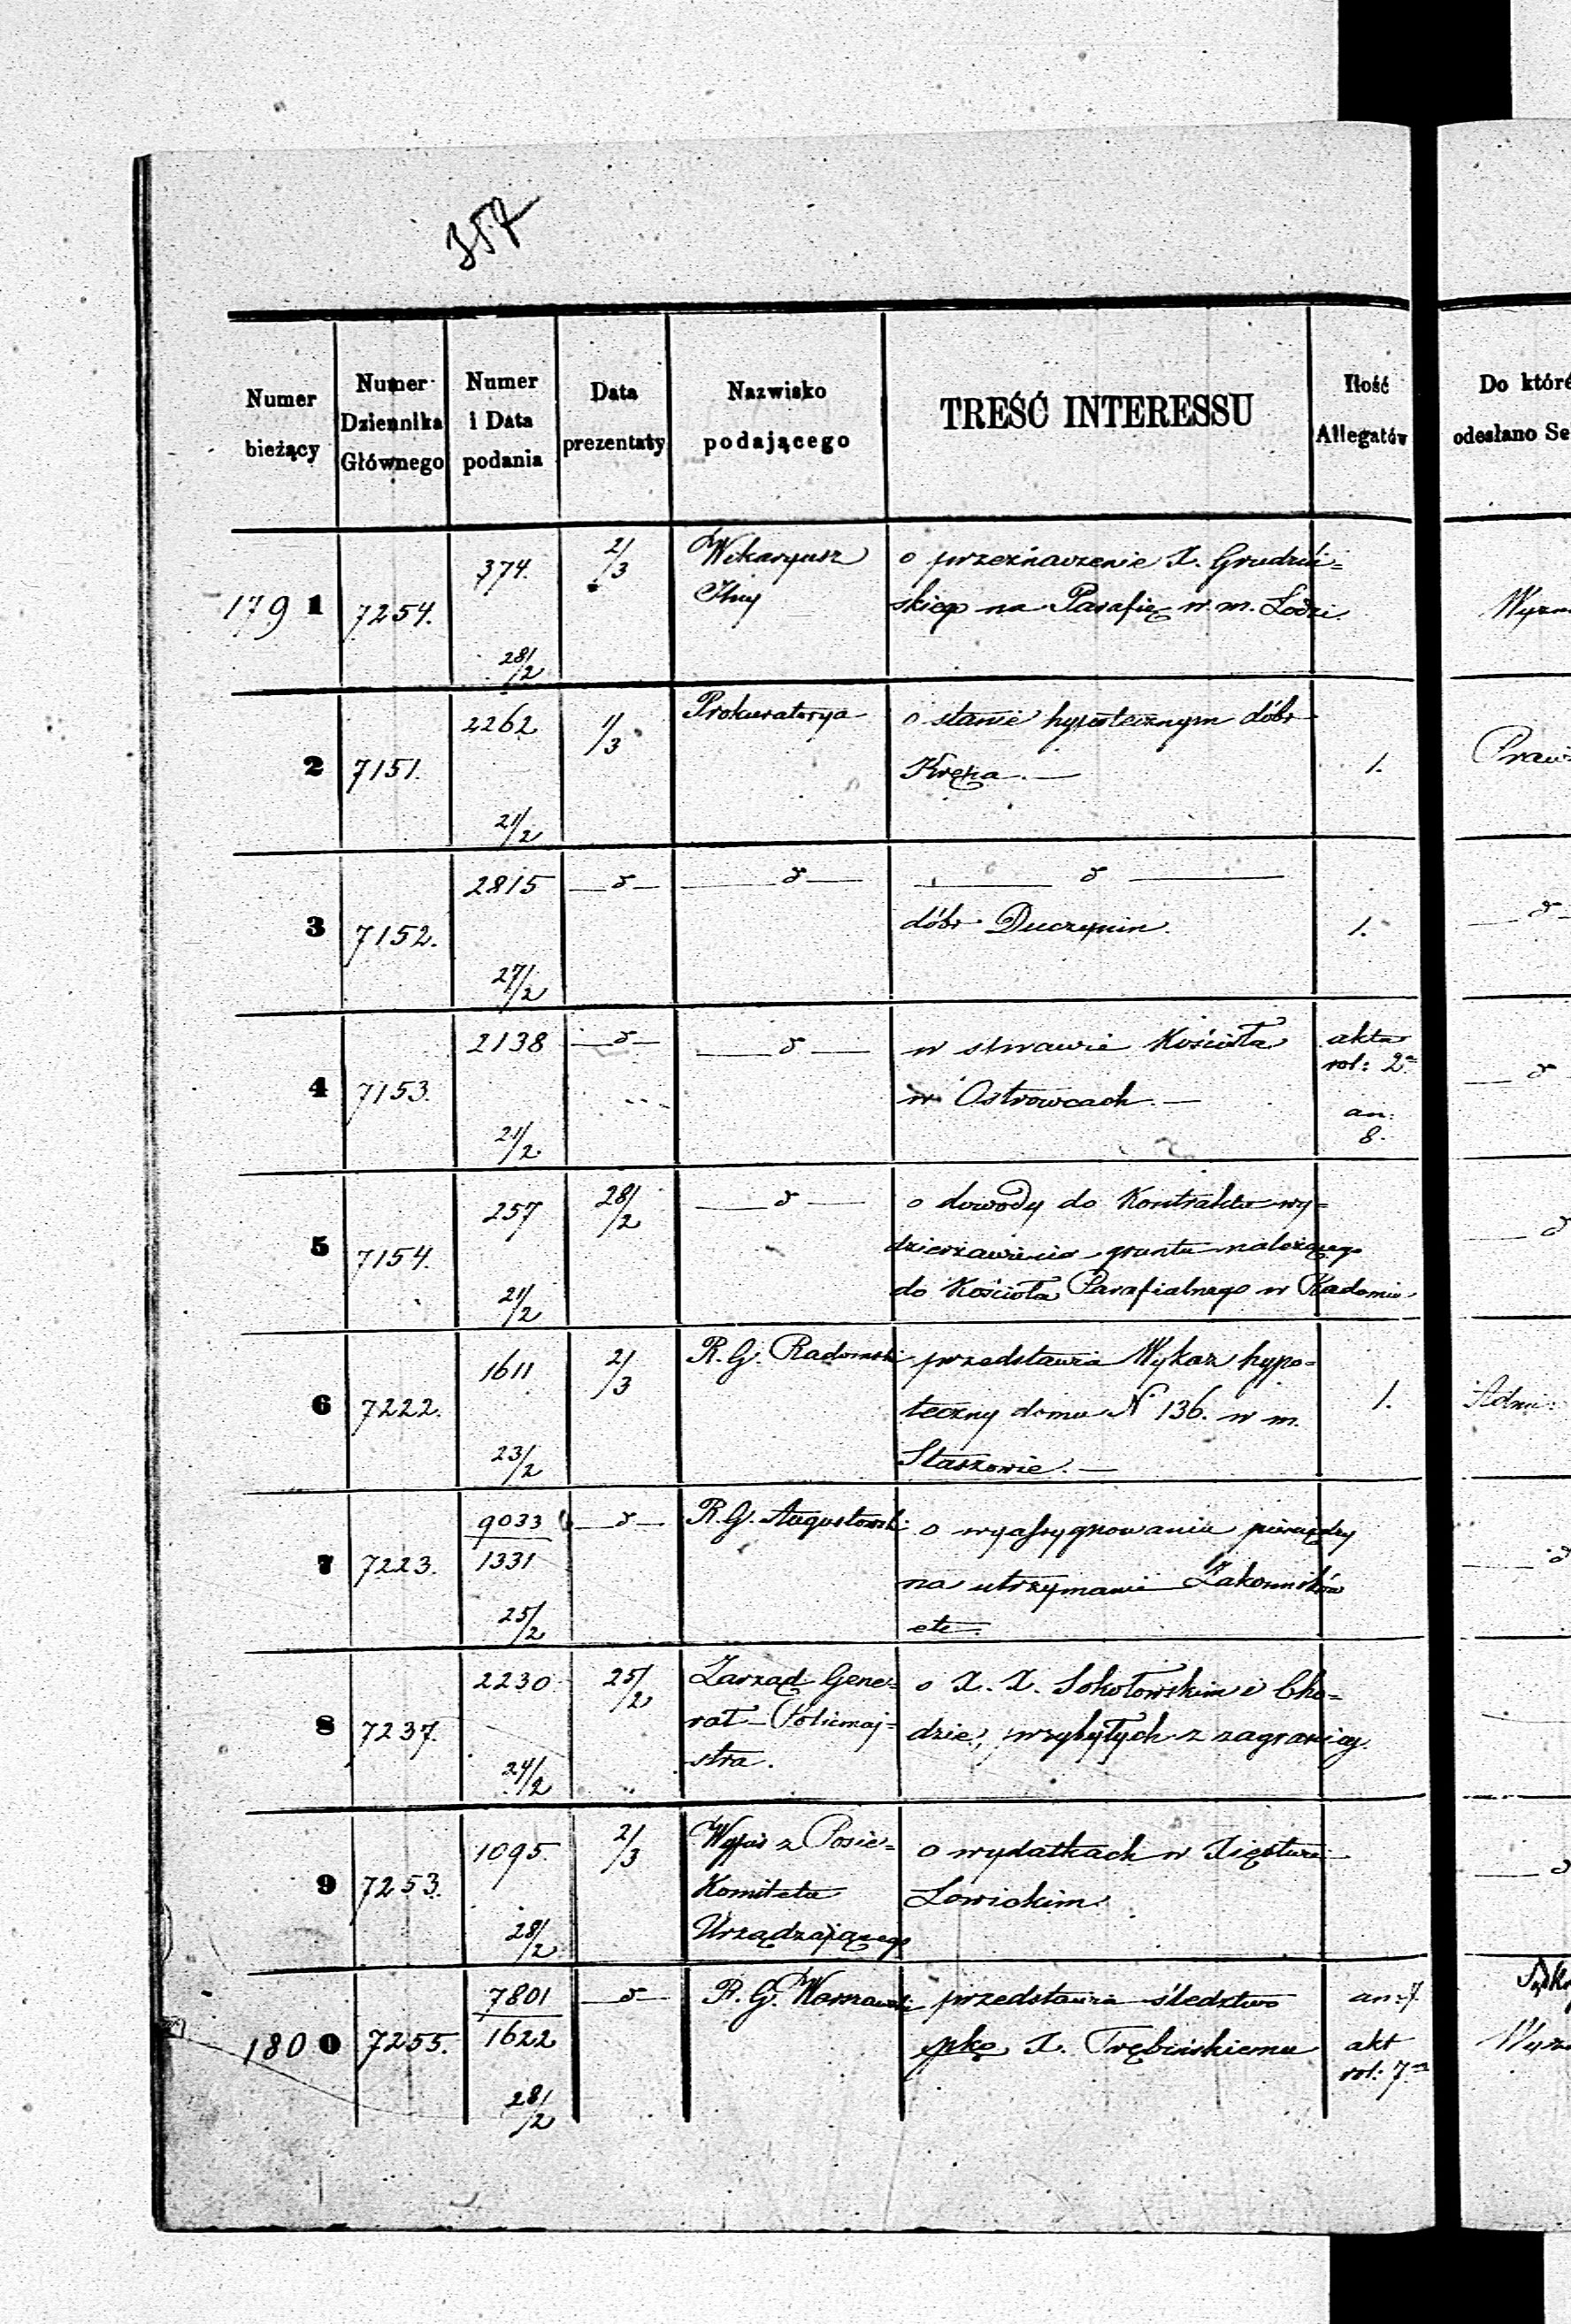 357
Numer bieżący
Numer Dziennika Głównego
Numer i Data podania
Data prezentaty
Nazwisko podającego
TREŚĆ INTERESSU
Ilość Allegatów
Do które
odesłano Se
1791
7254.
374.
28/2
2/3
Wikaryusz
o przeznaczenie X. Grudziń=
skiego na Parafię w m. Łodzi.
2
7151.
2262
21/2
1/3
Prokuratorya
o stanie hypotecznym dóbr
Kręża. —
1.
3
7152.
2815
27/2
— d —
— d —
— d —
dóbr Duczymin.
1.
— d —
4
7153.
2138
21/2
— d —
— d —
w sprawie Kościoła
w Ostrowcach. —
akta
vol: 2.
an:
8.
— d
5
7154.
257
21/2
28/2
— d —
o dowody do Kontraktu wy=
dzierżawienia gruntu należącego
do Kościoła Parafialnego w Radomiu.
— d
6
7222.
1611
23/2
2/3
R. G. Radomski
przedstawia Wykaz hypo=
teczny domu N 136. w m.
Staszowie. —
1.
Adm:
7
7223.
9033
1331
25/2
— d —
R. G. Augustowski
o wyassygnowaniu pieniędzy
na utrzymanie Zakonników
etc.
— d
8
7237.
2230
24/2
25/2
Zarząd Gene=
rał-Policmaj=
stra.
o X. X. Sokołowskim i Cho=
dzie, przybyłych z zagranicy.
9
7253.
1095.
28/2
2/3
Wypis z Posie=
Komitetu
Urządzającego
o wydatkach w Xięstwie
Łowickim.
— d
1800
7255.
7801
1622
28/2
— d —
R. G. Warszawski
przedstawia śledztwo
pko X. Trębińskiemu
an: 7.
akt
vol: 7